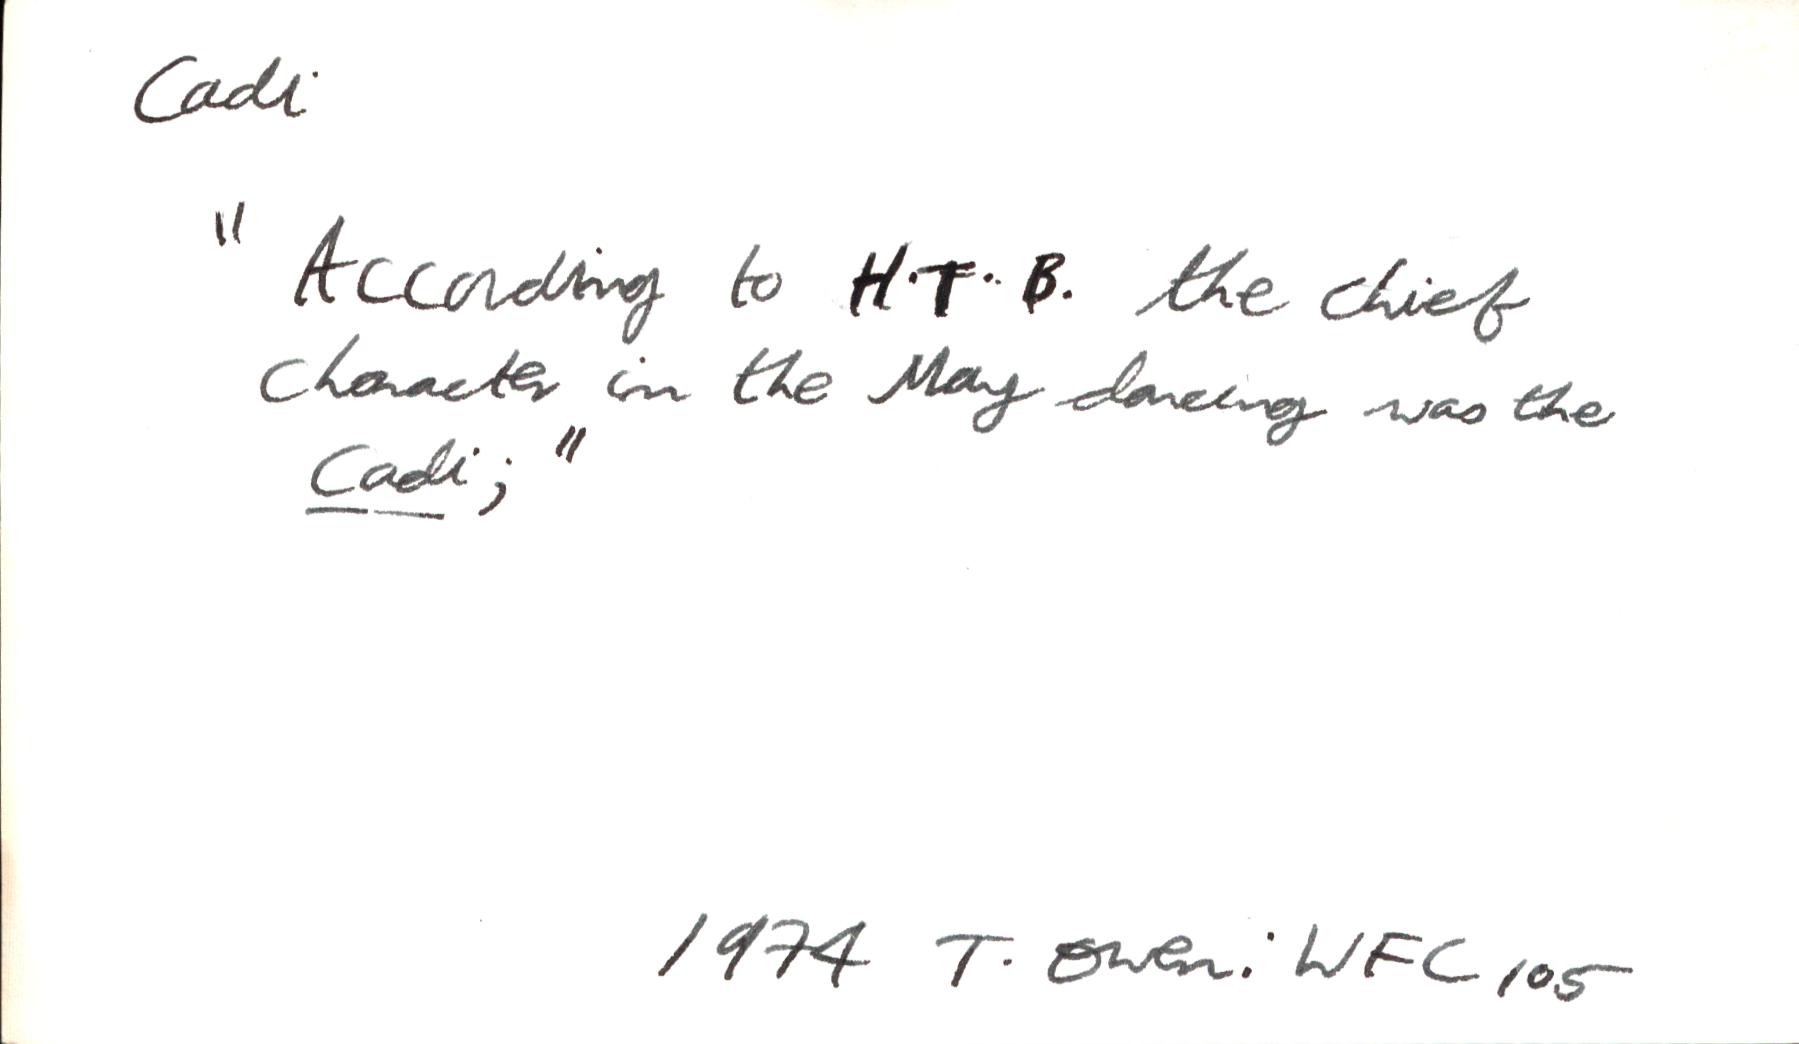 Cadi
" According to H.T.B. the chief
character in the May dancing was the
Cadi; "
1974 T. Owen: WFC 105